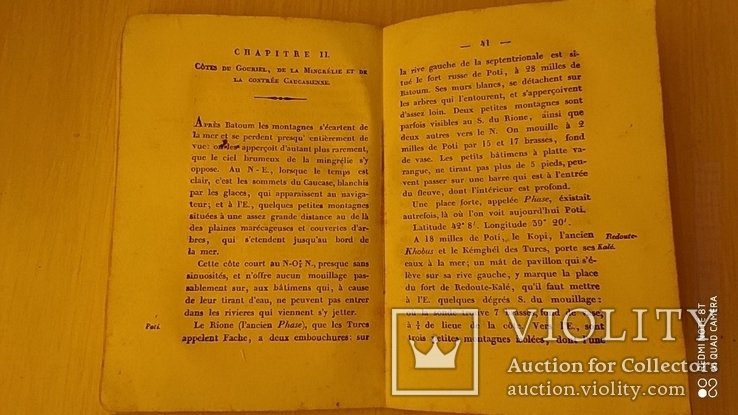 CHAPITRE II.
CÔTES DU GOURIEL, DE LA MINGRÉLIE ET DE
LA CONTRÉE CAUCASIENNE.
APRÈS Batoum les montagnes s'écartent de
la mer et se perdent presqu' entièrement de
vue: on les apperçoit d'autant plus rarement,
que le ciel brumeux de la mingrélie s'y
oppose. Au N-E., lorsque le temps est
clair, c'est les sommets du Caucase, blanchis
par les glaces, qui apparaissent au naviga-
teur; et à l'E., quelques petites montagnes
situées à une assez grande distance au de là
des plaines marécageuses et couvertes d'ar-
bres, qui s'etendent jusqu'au bord de
la mer.
Cette côte court au N-O¼N., presque sans
sinuosités, et n'offre aucun mouillage pas-
sablement sur, aux bâtimens qui, à cause
de leur tirant d'eau, ne peuvent pas entrer
dans les rivieres qui viennent s'y jetter.
Poti.
Le Rione (l'ancien Phase), que les Turcs
appelent Fache, a deux embouchures: sur
— 41 —
la rive gauche de la septentrionale est si-
tué le fort russe de Poti, à 28 milles de
Batoum. Ses murs blancs, se détachent sur
les arbres qui l'entourent, et s'apperçoivent
d'assez loin. Deux petites montagnes sont
parfois visibles au S. du Rione, ainsi que
deux autres vers le N. On mouille à 2
milles de Poti par 15 et 17 brasses, fond
de vase. Les petits bâtimens à platte va-
rangue, ne tirant pas plus de 5 pieds, peu-
vent passer sur une barre qui est à l'entrée
du fleuve, dont l'interieur est profond.
Une place forte, appelée Phase, éxistait
autrefois, là où l'on voit aujourd'hui Poti.
Latitude 42° 8'. Longitude 39° 20'.
A 18 milles de Poti, le Kopi, l'ancien
Redoute-
Kalé.
Khobus et le Kémghél des Turcs, porte ses
eaux à la mer; un mât de pavillon qui s'é-
lève sur sa rive gauche, y marque la place
du fort de Redoute-Kalé, qu'il faut mettre
à l'E. quelques dégrés S. du mouillage:
où la sonde trouve 7 brasses fond de vase,
à ¼ de lieue de la côte. Vers l'E., sont
trois petites montagnes isolées, dont l'une
VIOLITY
Auction for Collectors
auction.violity.com
REDMI NOTE 8T
AI QUAD CAMERA